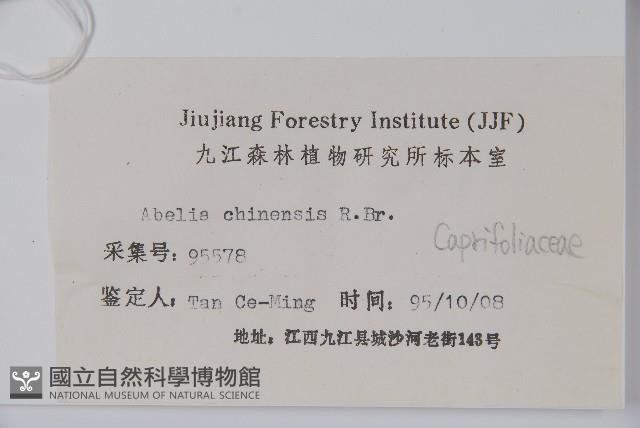 Jiujiang Forestry Institute (JJF)
九江森林植物研究所标本室
Abelia chinensis R.Br.
Caprifoliaceae
采集号: 95578
鉴定人: Tan Ce-Ming 时间: 95/10/08
地址: 江西九江县城沙河老街143号
國立自然科學博物館
NATIONAL MUSEUM OF NATURAL SCIENCE